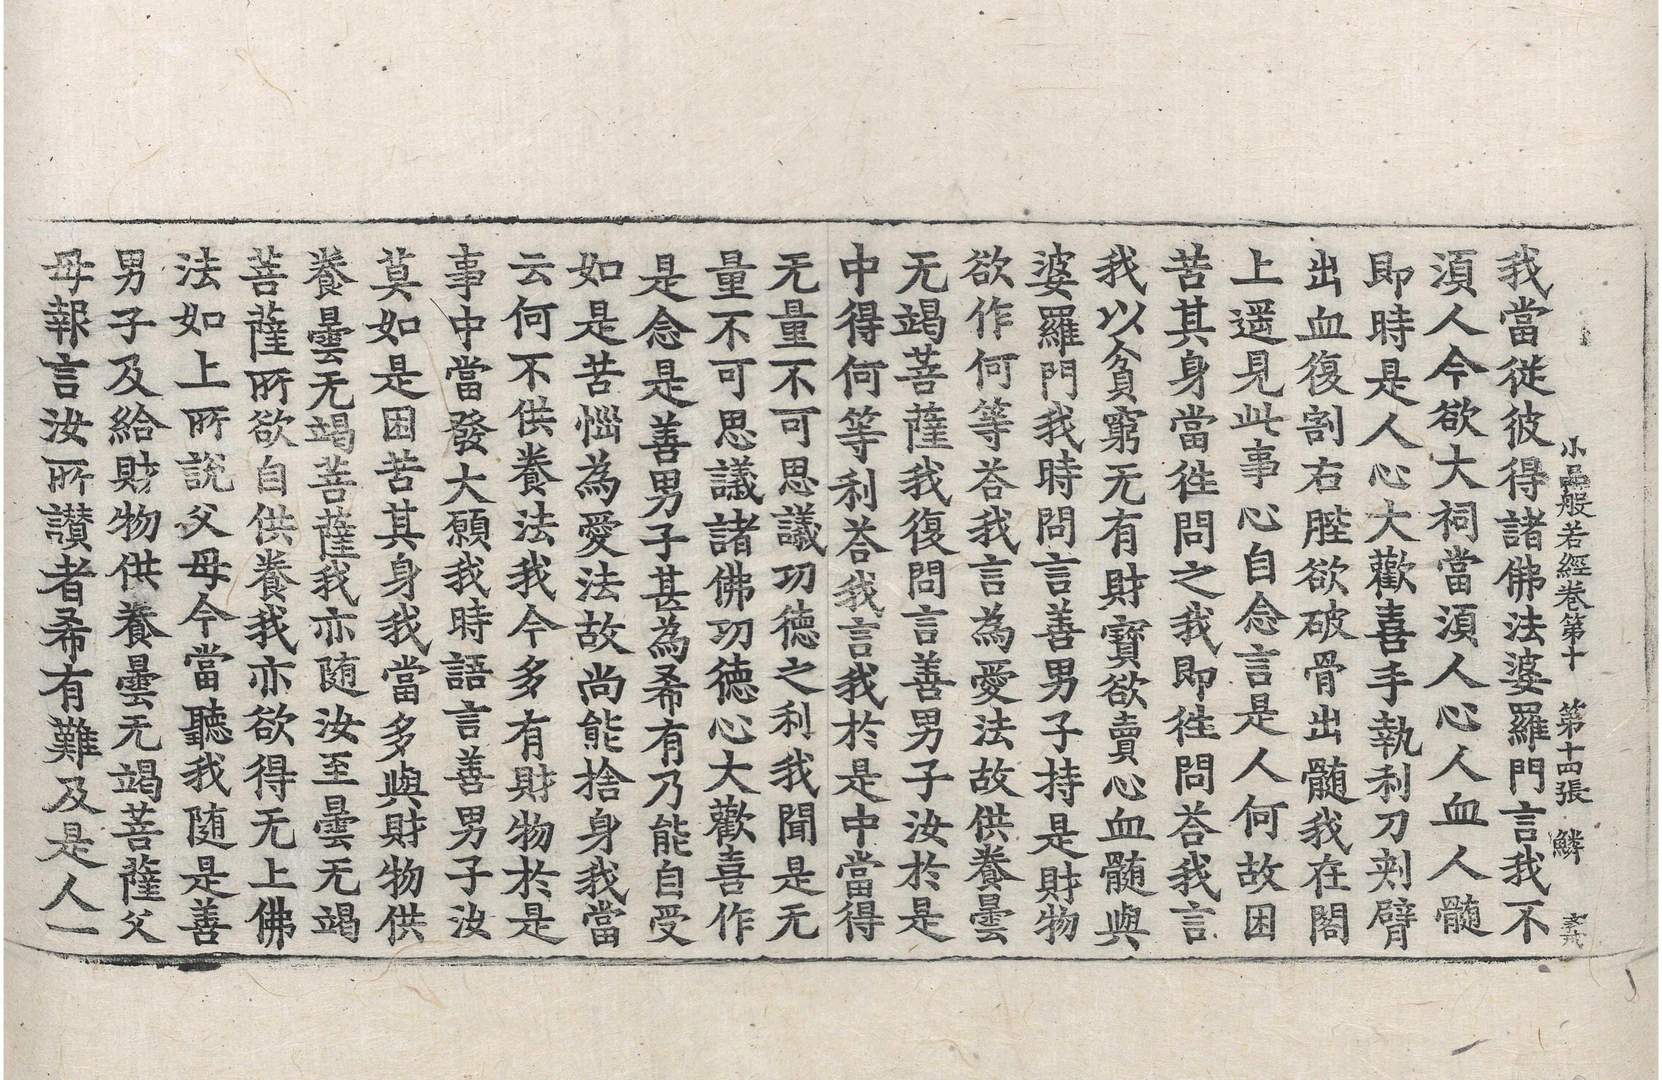 小品般若經卷第十　第十四張　鱗
我當從彼得諸佛法婆羅門言我不
湏人今欲大祠當湏人心人血人髓
即時是人心大歡喜手執利刀刾臂
出血復割右髀欲破骨出髓我在閣
上遥見此事心自念言是人何故困
苦其身當徃問之我即徃問荅我言
我以貧窮无有財寶欲賣心血髓與
婆羅門我時問言善男子持是財物
欲作何等荅我言為愛法故供養曇
无竭菩薩我復問言善男子汝於是
中得何等利荅我言我於是中當得
无量不可思議功德之利我聞是无
量不可思議諸佛功德心大歡喜作
是念是善男子甚為希有乃能自受
如是苦惱為愛法故尚能捨身我當
云何不供養法我今多有財物於是
事中當發大願我時語言善男子汝
莫如是困苦其身我當多與財物供
養曇无竭菩薩我亦随汝至曇无竭
菩薩所欲自供養我亦欲得无上佛
法如上所說父母今當聽我随是善
男子及給財物供養曇无竭菩薩父
母報言汝所讃者希有難及是人一